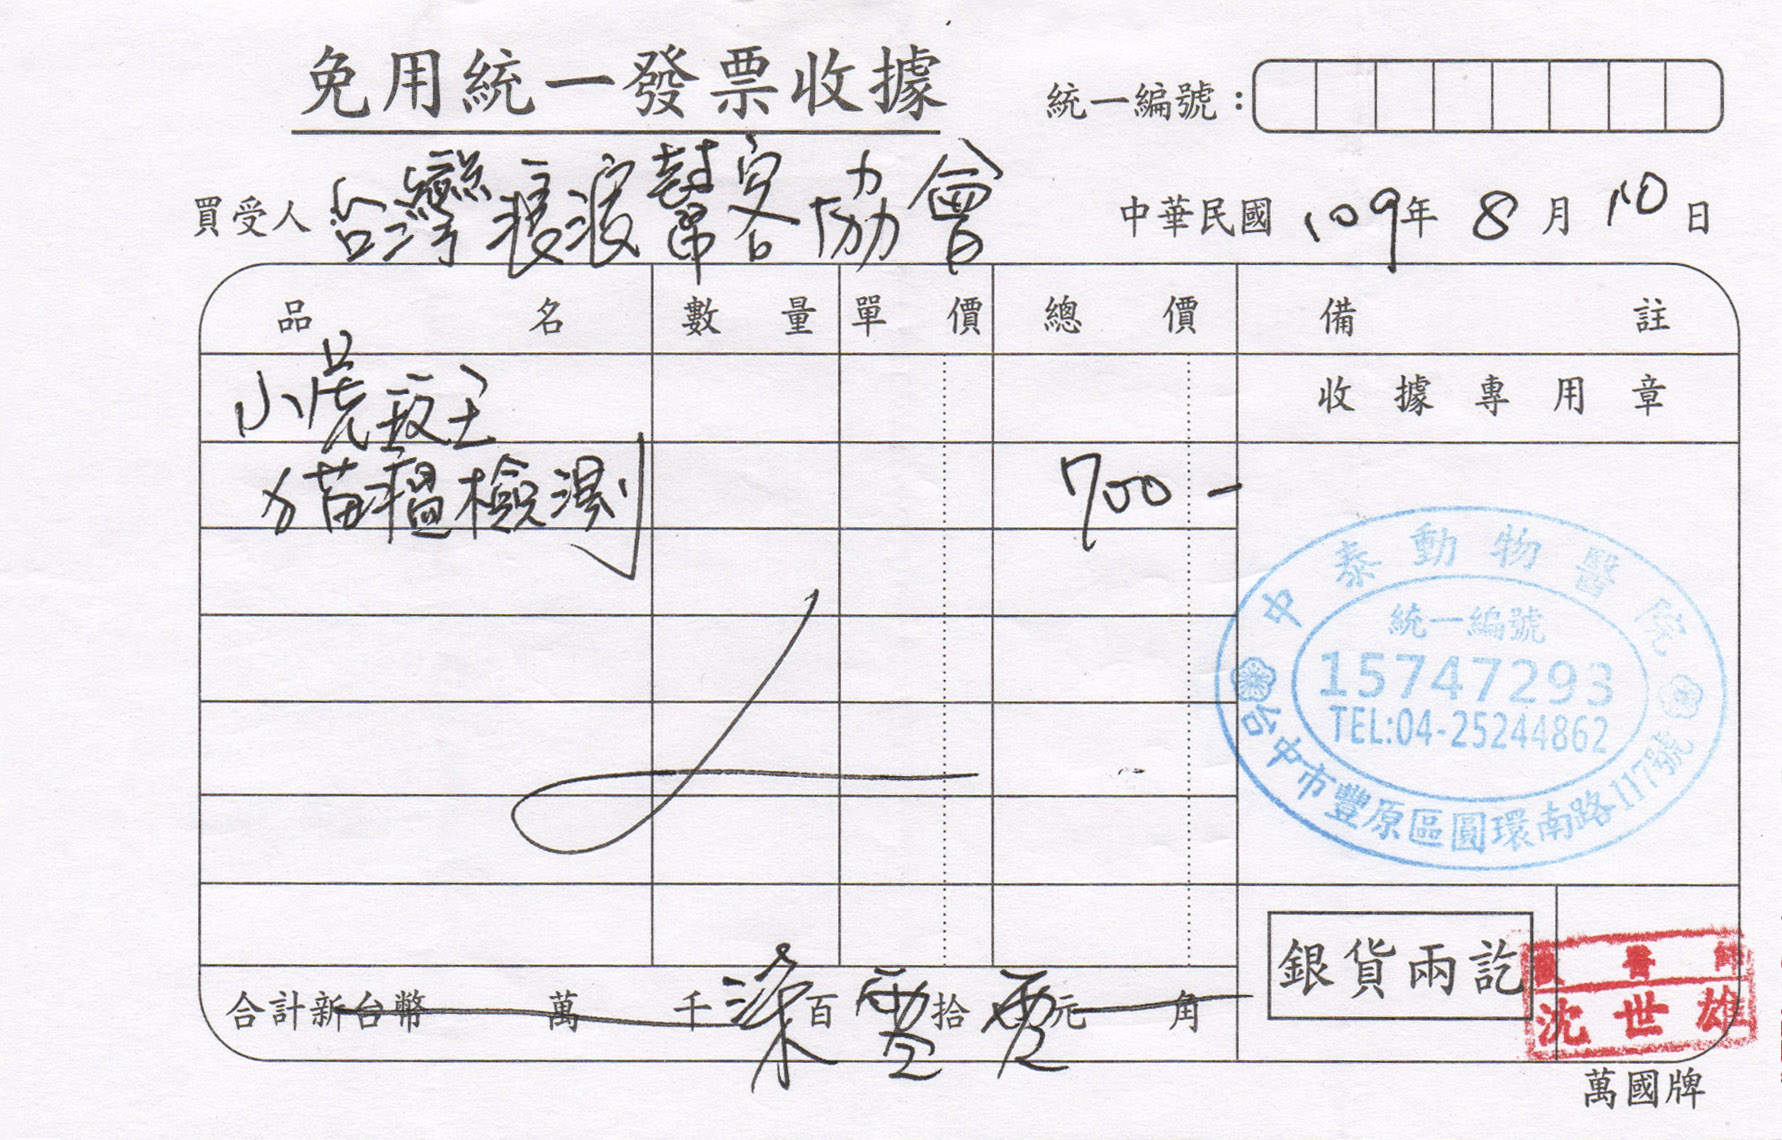 免用統一發票收據
統一編號：
買受人 台灣浪浪幫客協會
中華民國 109年 8月 10日
品名 數量 單價 總價 備註
小虎
收據專用章
貓瘟檢測 700-
中泰動物醫院
統一編號
15747293
TEL:04-25244862
台中市豐原區圓環南路117號
合計新台幣 萬 千 柒百 零拾 零元 角
銀貨兩訖
獸醫師
沈世雄
萬國牌